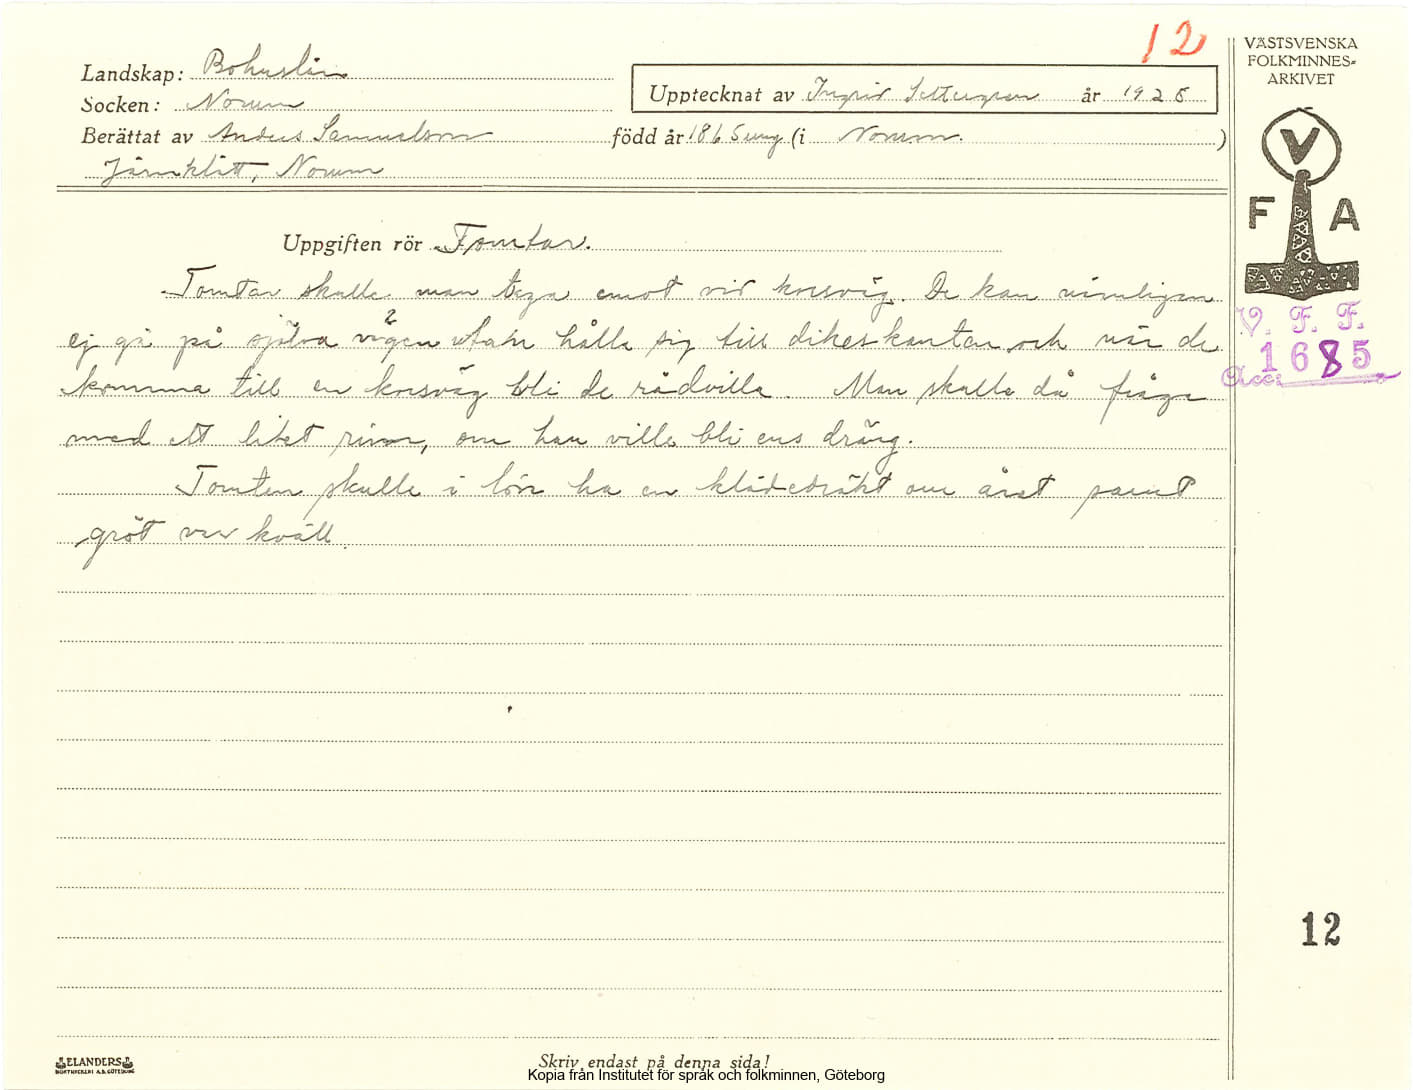 12
VÄSTSVENSKA
FOLKMINNES-
ARKIVET
Landskap: Bohuslän
Upptecknat av Ingrid Settergren år 1928
Socken: Norum
Berättat av Anders Samuelson född år 1865 ung (i Norum. )
Järnklätt, Norum
V
F A
Uppgiften rör Tomtar.
Tomtar skulle man taga emot vid korsväg. De kan nämligen
V. F. F.
ej gå på själva vägen utan hålla sig till dikeskanten och när de
1685
Acc:
komma till en korsväg bli de rådvilla. Man skulle då fråga
med ett litet rim, om han ville bli ens dräng.
Tomten skulle i lön ha en klädedräkt om året samt
gröt var kväll.
12
ELANDERS
BOKTRYCKERI A.B. GÖTEBORG
Skriv endast på denna sida!
Kopia från Institutet för språk och folkminnen, Göteborg